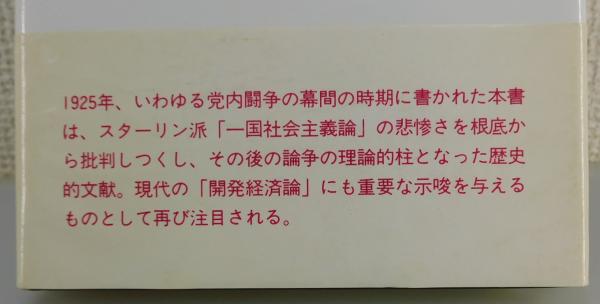 1925年、いわゆる党内闘争の幕間の時期に書かれた本書
は、スターリン派「一国社会主義論」の悲惨さを根底か
ら批判しつくし、その後の論争の理論的柱となった歴史
的文献。現代の「開発経済論」にも重要な示唆を与える
ものとして再び注目される。